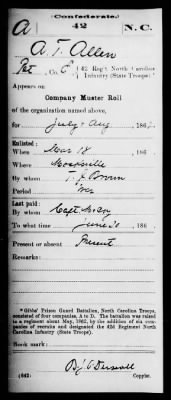 (Confederate.)
A 42 N.C.
A T Allen
Pvt, Co. C, 42 Reg't North Carolina
Infantry (State Troops).*
Appears on
Company Muster Roll
of the organization named above,
for July & Aug, 186
Enlisted:
When Mar 18, 186
Where Mocksville
By whom T. J. Brown
Period War
Last paid:
By whom Capt
To what time June 30, 186
Present or absent Present
Remarks:
*Gibbs' Prison Guard Battalion, North Carolina Troops,
consisted of four companies, A to D. The battalion was raised
to a regiment about May, 1862, by the addition of six com-
panies of recruits and designated the 42d Regiment North
Carolina Infantry (State Troops).
Book mark:
(642)
Copyist.